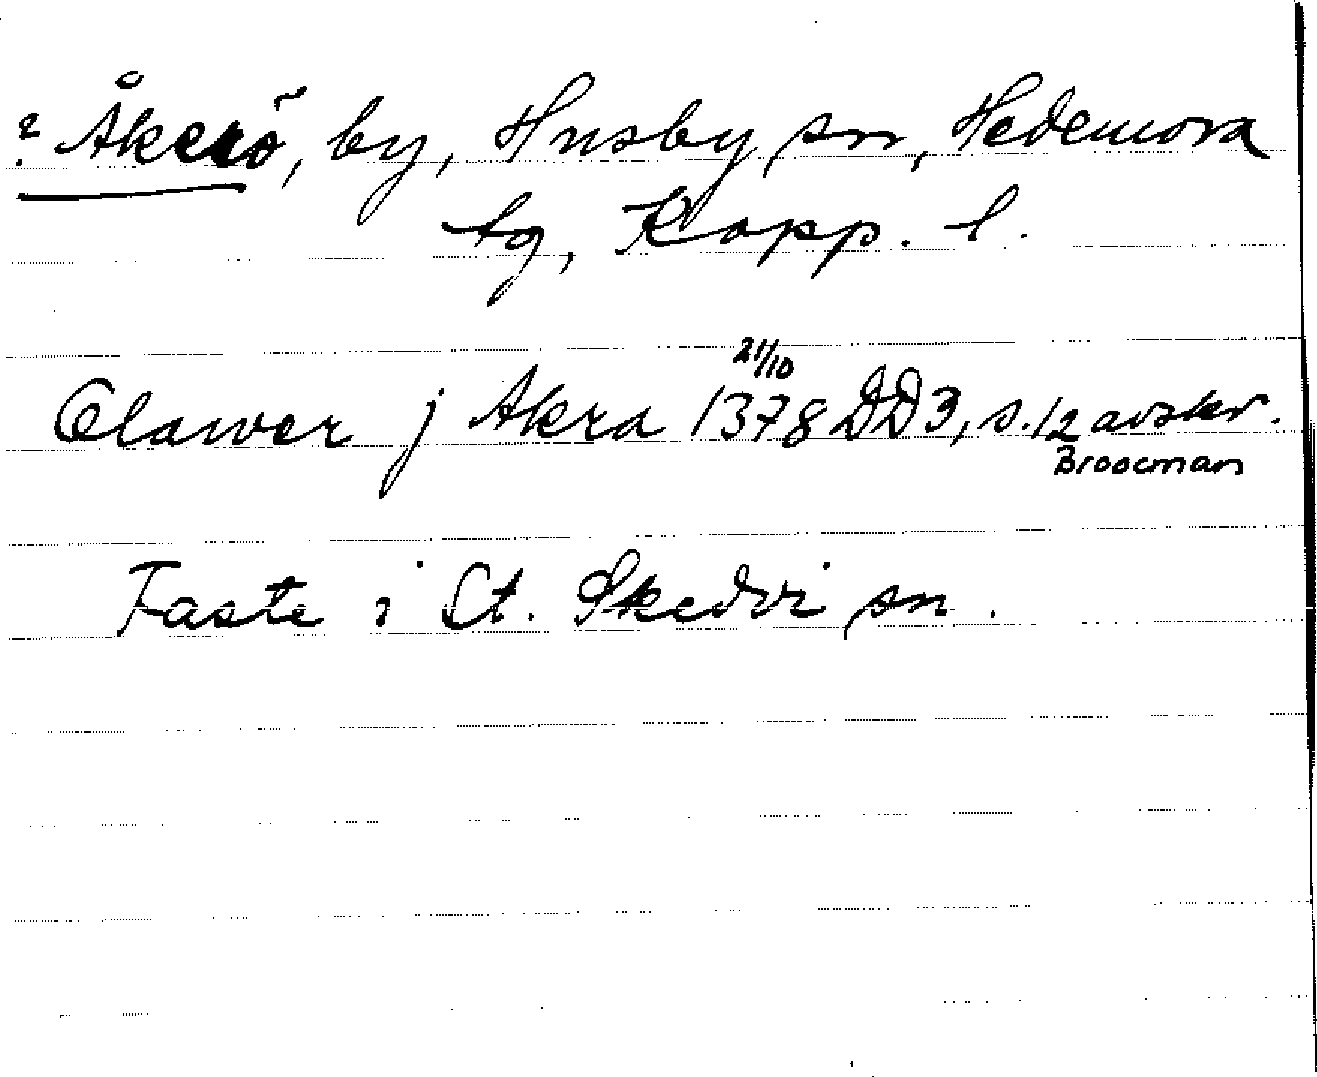 ? Åkerö, by, Husby sn, Hedemora
tg, Kopp. l.
21/10
Olawer j Akra 1378 DD3, s. 12 avskr.
Broocman
Faste i St. Skedvi sn.